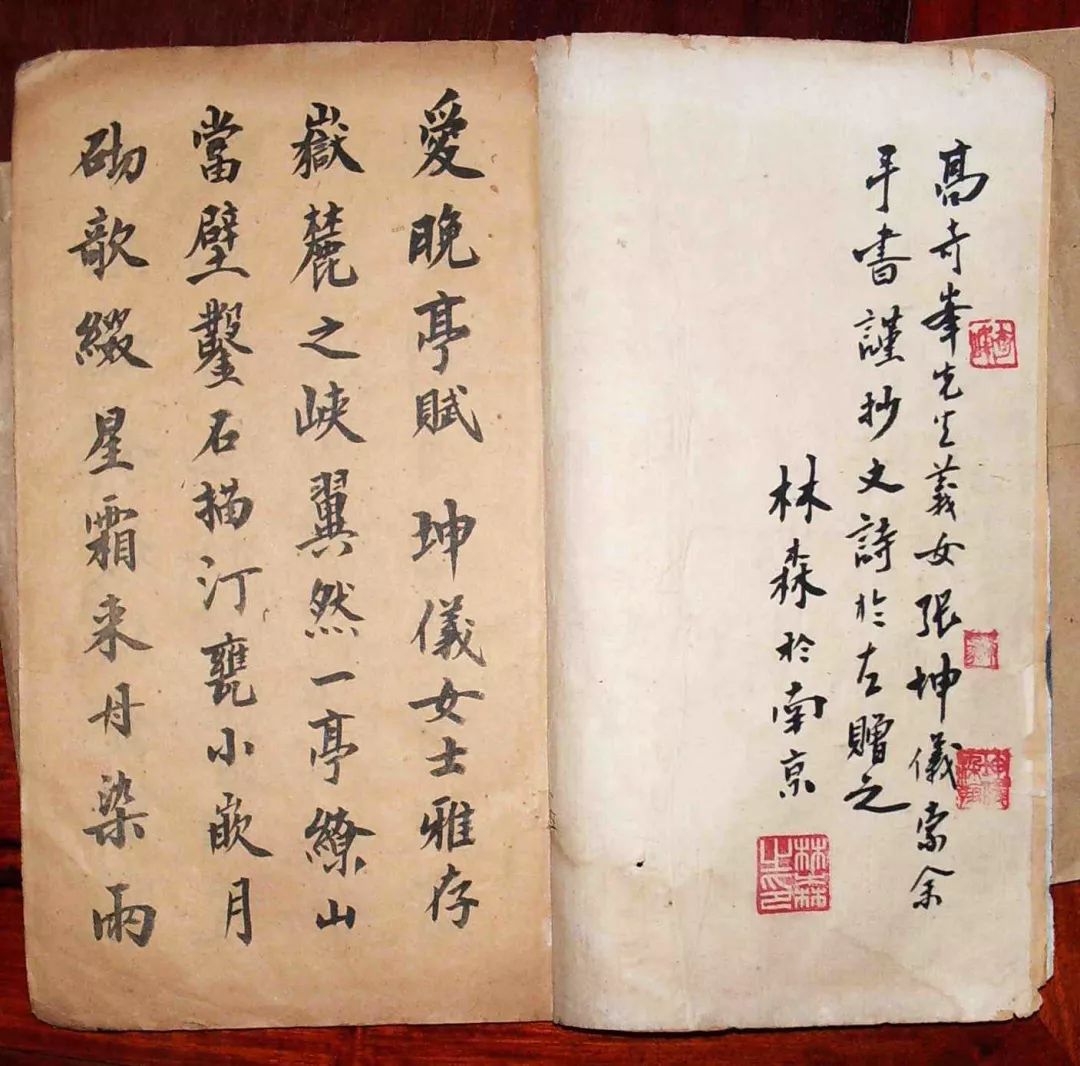 高奇峯先生義女張坤儀索余
手書謹抄文詩於左贈之
林森於南京
林森之印
愛晚亭賦 坤儀女士雅存
嶽麓之峽翼然一亭繚山
當壁鑿石描汀甃小嵌月
砌歌綴星霜来丹染雨